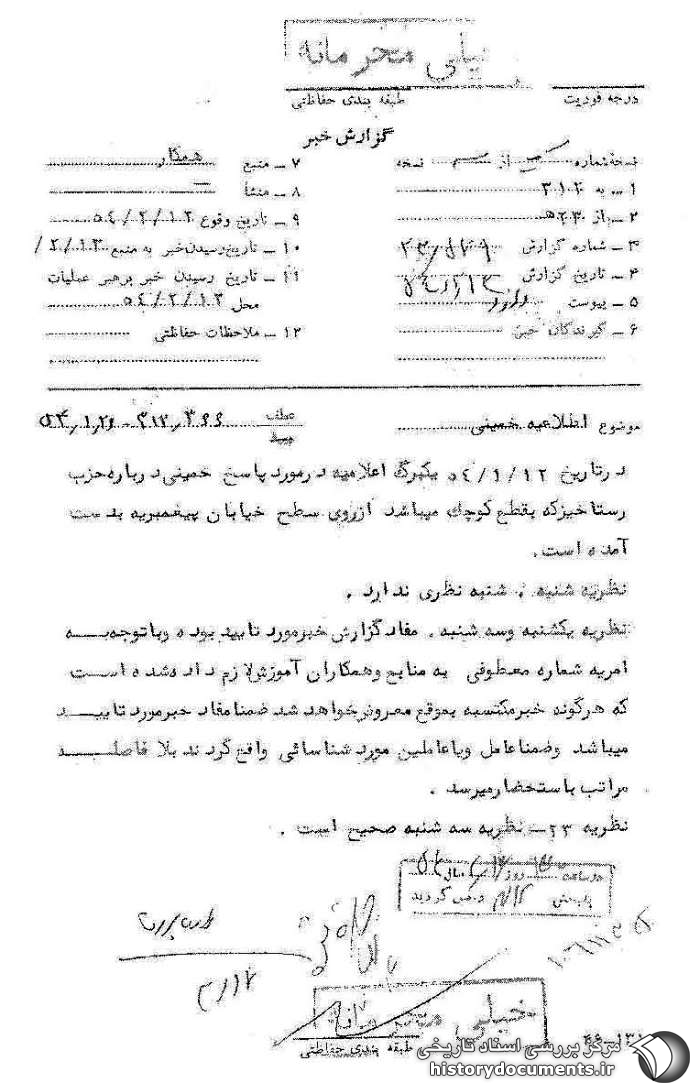 خیلی محرمانه
درجه فوریت
طبقه بندی حفاظتی
گزارش خبر
نسخه شماره از نسخه
۱ ـ به ۳۱۲
۲ ـ از ۲۳ هـ
۳ ـ شماره گزارش
۴ ـ تاریخ گزارش
۵ ـ پیوست دارد
۶ ـ گیرندگان خبر
۷ ـ منبع همکار
۸ ـ منشأ ـ
۹ ـ تاریخ وقوع ۵۴/۲/۱۲
۱۰ ـ تاریخ رسیدن خبر به منبع ۲/۱۳/
۱۱ ـ تاریخ رسیدن خبر برهبر عملیات
محل ۵۴/۲/۱۳
۱۲ ـ ملاحظات حفاظتی
موضوع اطلاعیه خمینی
عطف
پیرو
۳۱۲/۳۶۶ - ۵۴/۱/۲۶
درتاریخ ۵۴/۱/۱۲ یکبرگ اعلامیه درمورد پاسخ خمینی درباره حزب
رستاخیز که بقطع کوچك میباشد ازروی سطح خیابان پیغمبریه بدست
آمده است .
نظریه شنبه . شنبه نظری ندارد .
نظریه یکشنبه وسه شنبه . مفاد گزارش خبرمورد تایید بوده وباتوجه به
امریه شماره معطوفی به منابع وهمکاران آموزش لازم داده شده است
که هرگونه خبر مکتسبه بموقع معروض خواهد شد ضمنا مفاد خبرمورد تایید
میباشد وضمنا عامل ویا عاملین مورد شناسائی واقع گردند بلا فاصله
مراتب باستحضار میرسد .
نظریه ۲۳ ـ نظریه سه شنبه صحیح است .
در ساعت روز سال
ببخش واصل گردید
خیلی محرمانه
طبقه بندی حفاظتی
مرکز بررسی اسناد تاریخی
historydocuments.ir